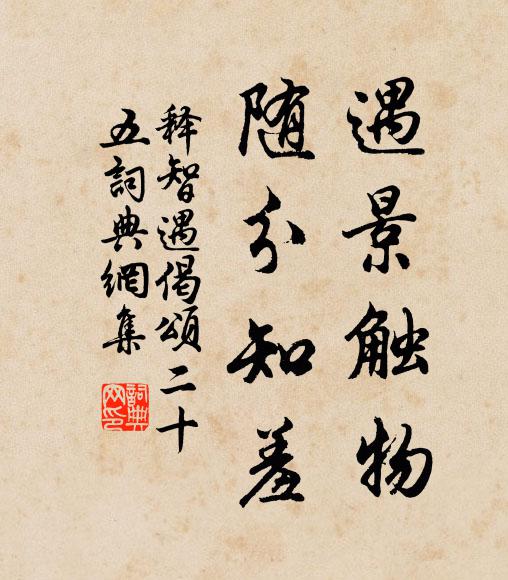 遇景触物
随分知羞
释智遇偈頌二十
五詞典網集
詞典
网印